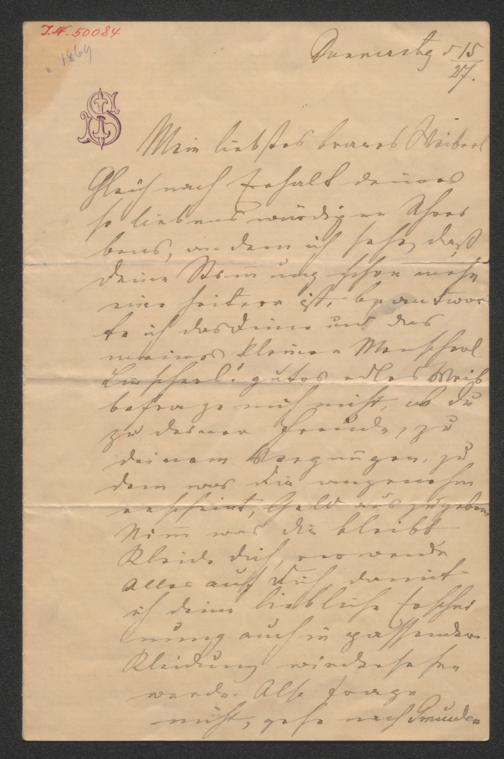 I.N. 50084
1869
Donnerstag d 15/27.
Mein liebstes braves Weiberl
Gleich nach Erhalt deines
so liebenswürdigen Schrei
bens, an dem ich sehe, daß
deine Stimmung schon mehr
eine heitere ist, beantwor
te ich das Deine und das
meines kleinen Menscherl
gutes edles Weib
befrage mich nicht, ob du
zu deiner Freude, zu
deinem Vergnügen, zu
dem was dir angenehm
erscheint, Geld auszugeben
Nimm was dir bleibt
Kleide dich, verwende
Alles auf Dich, damit
ich deine liebliche Erschei
nung auch in passender
Kleidung wiedersehen
werde. Also frage
nicht, gehe nach Gmunden